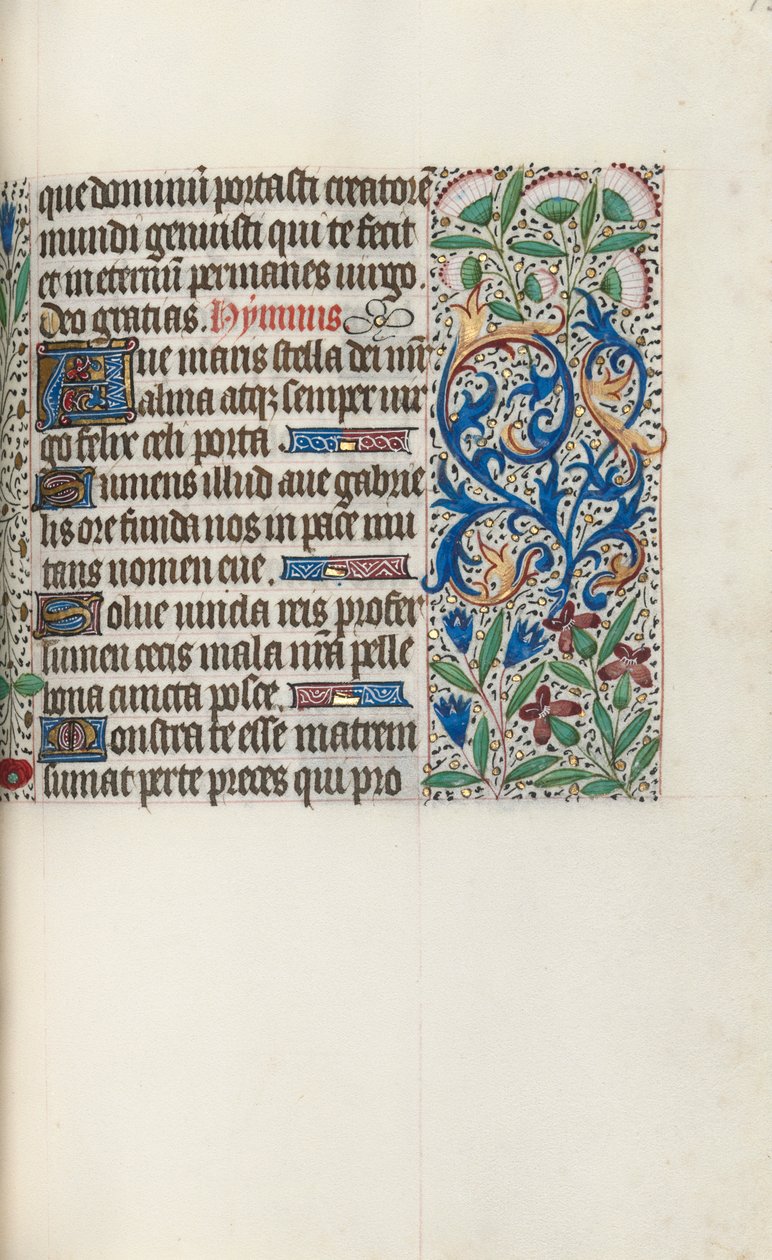 que dominū portasti creatorē
mundi genuisti qui te fecit
et in eternū permanes uirgo.
Deo gratias. Hymnus
Aue maris stella dei mr̄
alma atqꝫ semper uir
go felix celi porta
Sumens illud aue gabrie
lis ore funda nos in pace mu
tans nomen eue.
Solue uincla reis profer
lumen cecis mala nr̄a pelle
bona cuncta posce.
Monstra te esse matrem
sumat per te preces qui pro